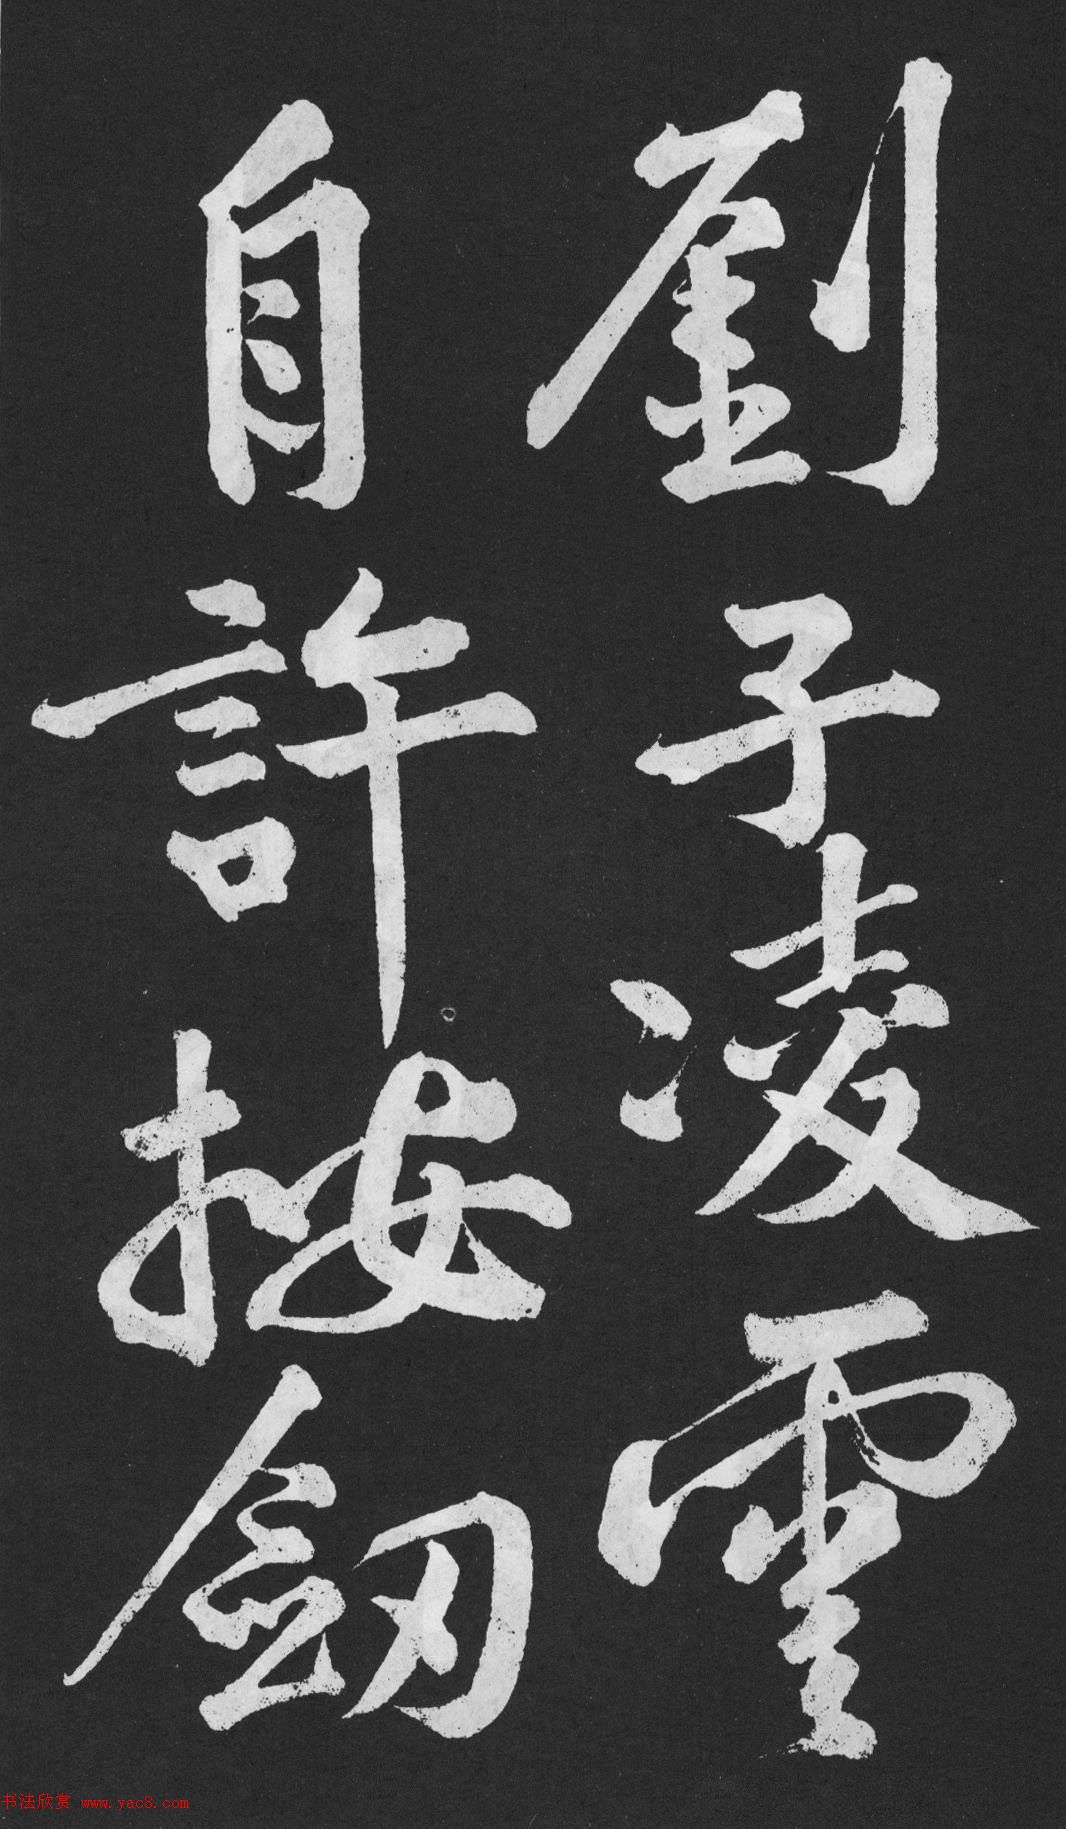 劉子凌雲
自許按劔
书法欣赏 www.yac8.com